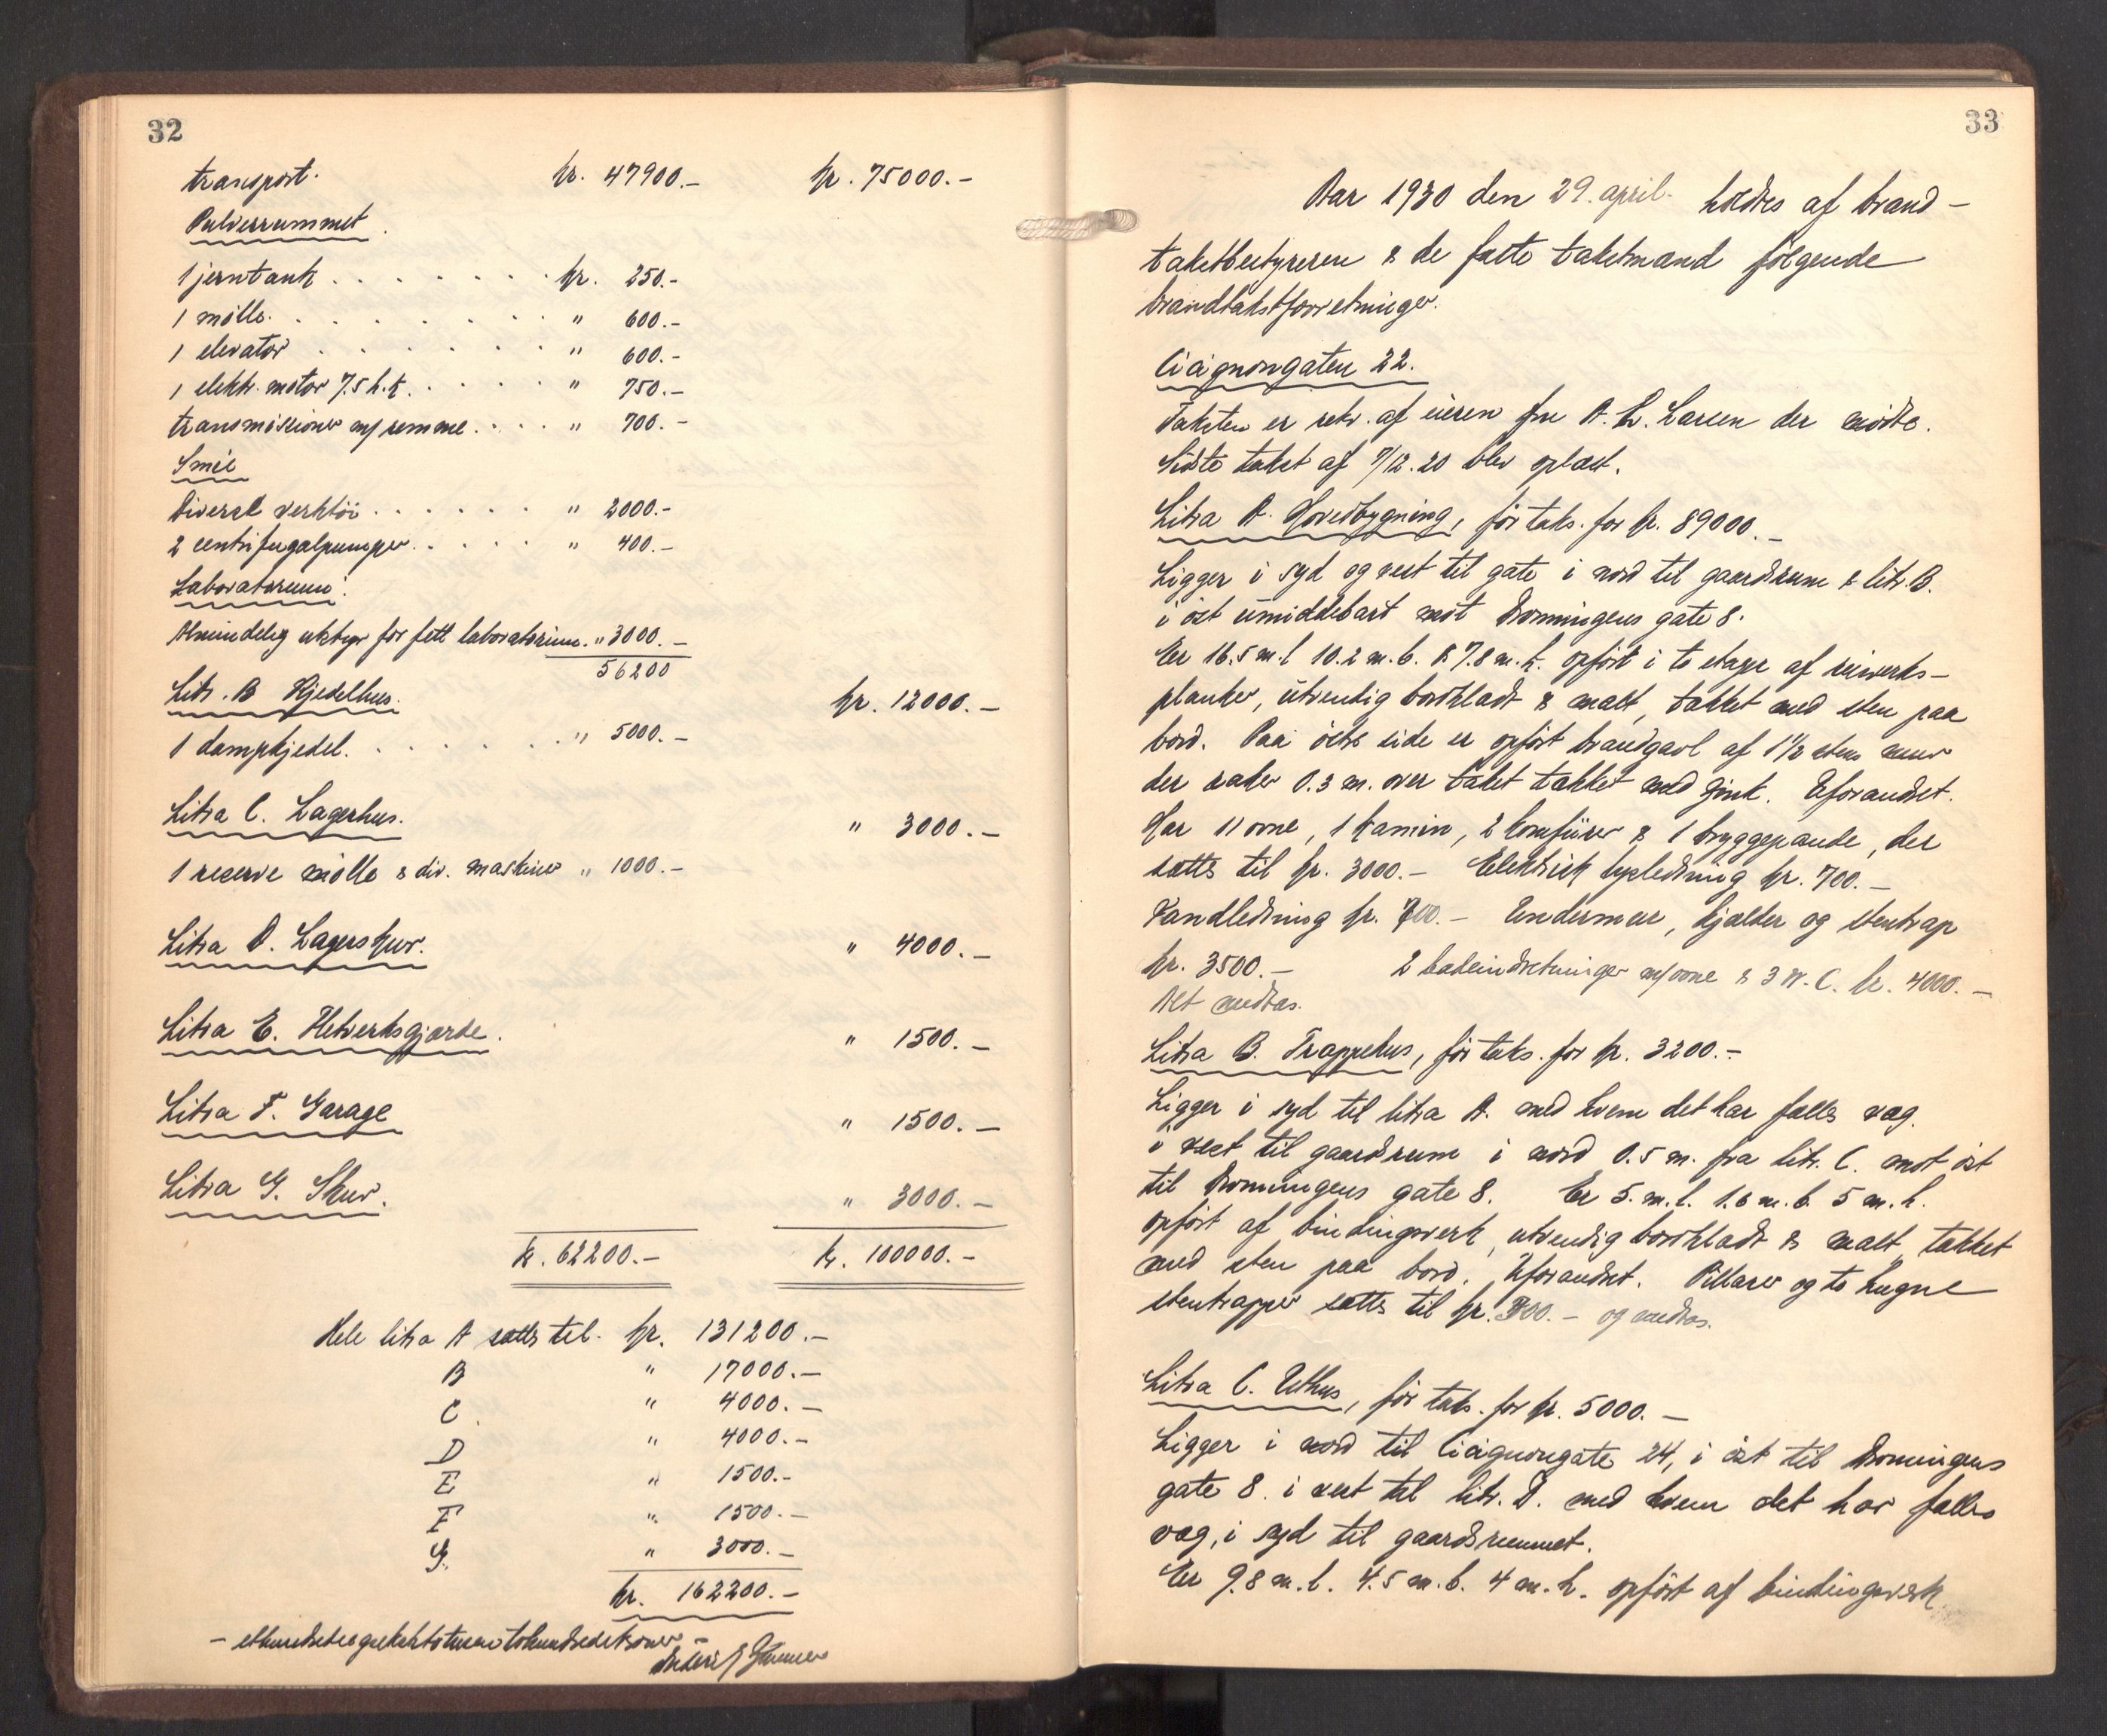 32
transport. kr. 47900.- kr. 75000.-
Pulverrummet.
1 jerntank . . . . . . . kr. 250.-
1 mølle. . . . . . . . . " 600.-
1 elevator . . . . . . . " 600.-
1 elektr. motor 7.5 h.k. . . . . " 750.-
transmissioner m/ remme. . . . " 700.-
Smie
Diverse verktøi . . . . . . " 2000.-
2 centrifugalpumper. . . . . " 400.-
Laboratorium:
Almindelig utstyr for fett laboratorium. " 3000.-
56200
Litr. B Kjedelhus. kr. 12000.-
1 dampkjedel. . . . . . . . " 5000.-
Litra C. Lagerhus. " 3000.-
1 reserve mølle & div. maskiner " 1000.-
Litra D. Lagerskur. " 4000.-
Litra E. Netverksgjærde. " 1500.-
Litra F. Garage " 1500.-
Litra G. Skur. " 3000.-
kr. 62200.- kr. 100000.-
Hele litra A sættes til. kr. 131200.-
B " 17000.-
C. " 4000.-
D " 4000.-
E " 1500.-
F " 1500.-
G. " 3000.-
kr. 162200.-
33
Aar 1930 den 29. april. holdtes af brand-
takstbestyreren & de faste takstmænd følgende
brandtakstforretninger.
Cicignongaten 22.
Taksten er rekv. af eieren fru A. L. Larsen der mødte.
Sidste takst af 7/12.20 blev oplæst.
Litra A. Hovedbygning, før taks. for kr. 89000.-
Ligger i syd og vest til gate i nord til gaardsrum & litr. B.
i øst umiddelbart mot Dronningens gate 8.
Er 16.5 m. l 10.2 m. b. & 7.8 m. h. opført i to etager af reisverks-
planker, utvendig bordklædt & malt, tækket med sten paa
bord. Paa østre side er opført brandgavl af 1 1/2 stens mur
der rækker 0.3 m. over taket tækket med zink. Uforandret.
Har 11 ovne, 1 kamin, 2 komfürer & 1 bryggepande, der
sættes til kr. 3000.- Elektrisk lysledning kr. 700.-
Vandledning kr. 700.- Undermur, kjælder og stentrap
kr. 3500.- 2 badeindretninger m/ovne & 3 W. C. kr. 4000.-
Alt medtas.
Litra B. Trappehus, før taks. for kr. 3200.-
Ligger i syd til litra A. med hvem det har fælles væg.
i vest til gaardsrum i nord 0.5 m. fra litr. C. mot øst
til Dronningens gate 8. Er 5. m. l. 1.6 m. b. 5 m. h.
opført af bindingsverk, utvendig bordklædt & malt, tækket
med sten paa bord. Uforandret. Pillarer og to hugne
stentrapper sættes til kr. 300.- og medtas.
Litra C. Uthus, før taks. for kr. 5000.-
Ligger i nord til Cicignongate 24, i øst til Dronningens
gate 8. i vest til litr. D. med hvem det har fælles
væg, i syd til gaardsrummet.
Er 9.8 m. l. 4.5 m. b. 4 m. h. opført af bindingsverk